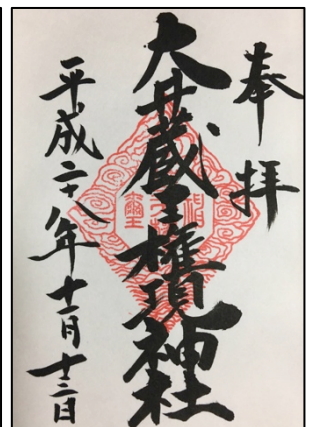 奉拝
大井蔵王権現神社
平成二十八年十一月十三日